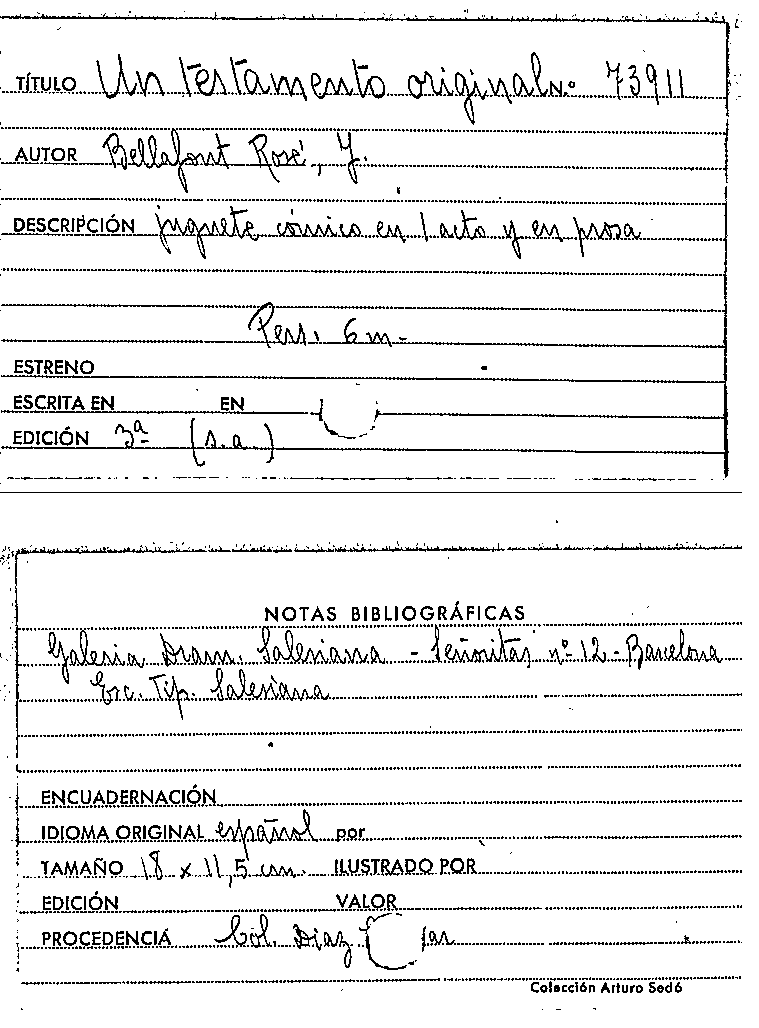 TÍTULO Un testamento original N.º 73911
AUTOR Bellafont Rosé, J.
DESCRIPCIÓN juguete cómico en 1 acto y en prosa
Pers. 6 m.
ESTRENO
ESCRITA EN EN
EDICIÓN 3ª (s.a.)
NOTAS BIBLIOGRÁFICAS
Galeria Dram. Salesiana - Señoritas nº 12 - Barcelona
Esc. Tip. Salesiana
ENCUADERNACIÓN
IDIOMA ORIGINAL español por
TAMAÑO 18 x 11,5 cm. ILUSTRADO POR
EDICIÓN VALOR
PROCEDENCIA Col. Diaz
Colección Arturo Sedó